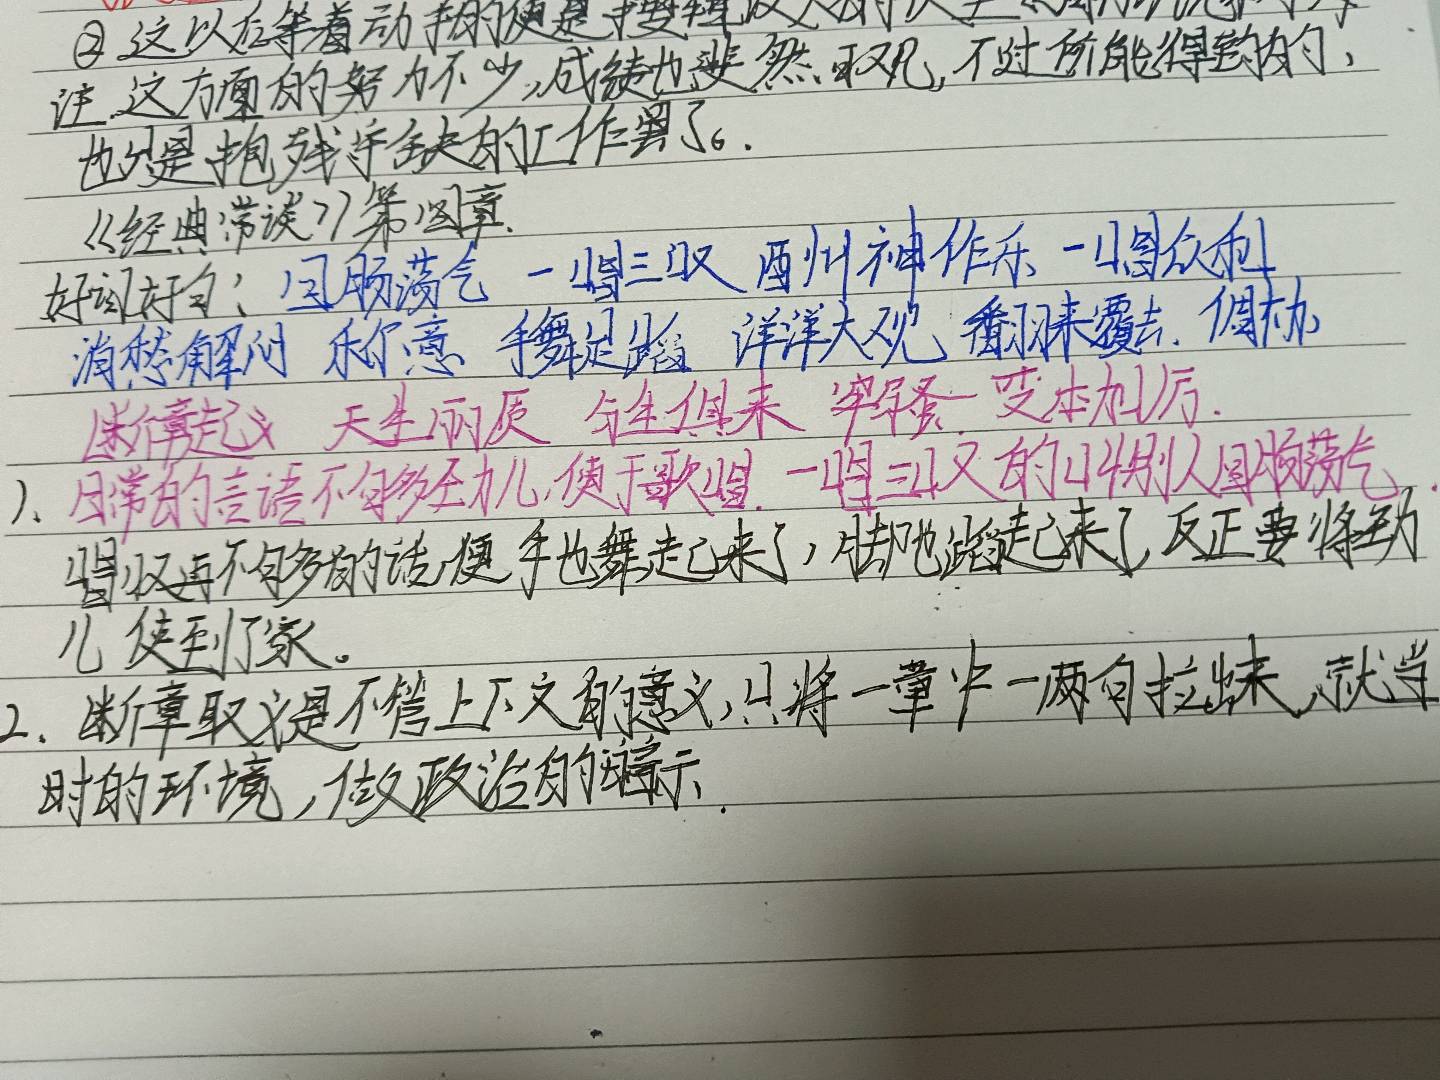 ②这以后等着动手的便是搜辑
注.这方面的努力不少,成绩也斐然可观,不过所能得到的,
也只是抱残守缺的工作罢了。
《经典常谈》第四章.
好词好句: 回肠荡气 一唱三叹 酉州神作乐 一唱众和
消愁解闷 乐尔意 手舞足蹈 洋洋大观 翻来覆去
断章起义 天生丽质 与生俱来 牢骚 变本加厉.
1、日常的言语不够劲儿,便于歌唱.一唱三叹的叫别人回肠荡气.
唱叹再不够的话,便手也舞起来了,脚也蹈起来了,反正要将劲
儿使到了家。
2.断章取义是不管上下文的意义,只将一章中一两句拉出来,就当
时的环境,做政治的暗示.